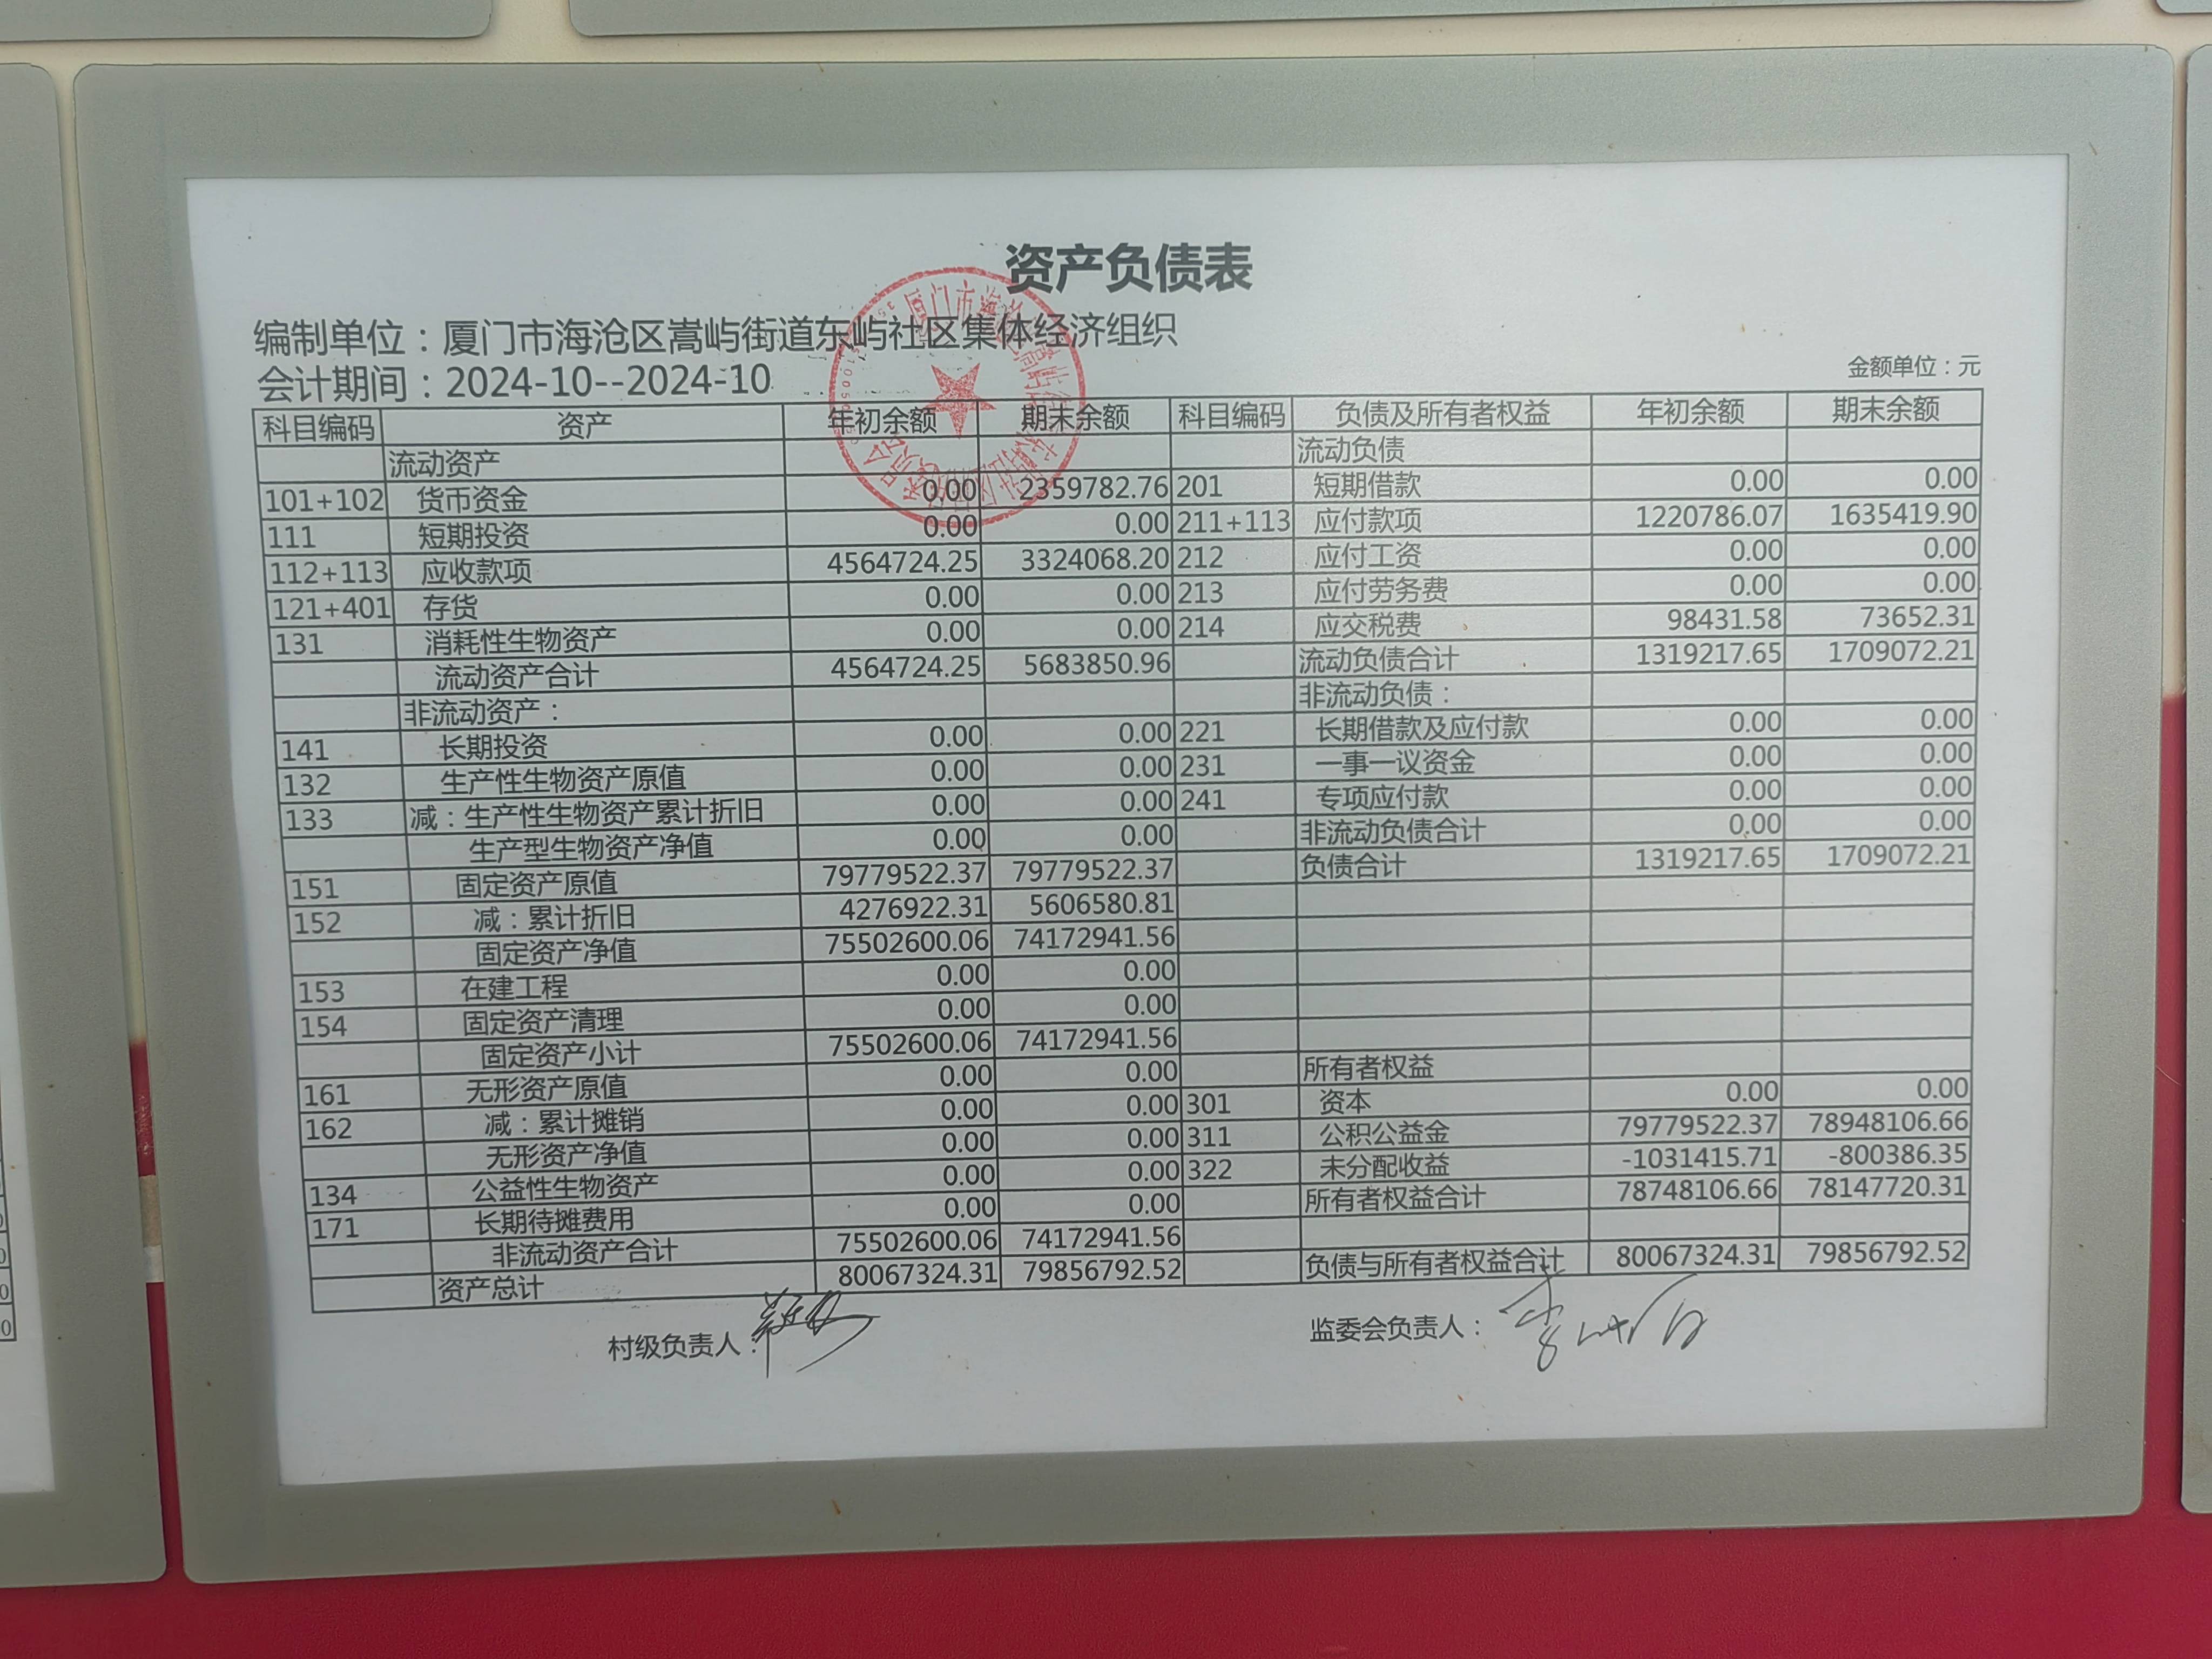 资产负债表
编制单位：厦门市海沧区嵩屿街道东屿社区集体经济组织
会计期间：2024-10--2024-10
金额单位：元
科目编码 资产 年初余额 期末余额 科目编码 负债及所有者权益 年初余额 期末余额
流动资产 流动负债
101+102 货币资金 0.00 2359782.76 201 短期借款 0.00 0.00
111 短期投资 0.00 0.00 211+113 应付款项 1220786.07 1635419.90
112+113 应收款项 4564724.25 3324068.20 212 应付工资 0.00 0.00
121+401 存货 0.00 0.00 213 应付劳务费 0.00 0.00
131 消耗性生物资产 0.00 0.00 214 应交税费 98431.58 73652.31
流动资产合计 4564724.25 5683850.96 流动负债合计 1319217.65 1709072.21
非流动资产： 非流动负债：
141 长期投资 0.00 0.00 221 长期借款及应付款 0.00 0.00
132 生产性生物资产原值 0.00 0.00 231 一事一议资金 0.00 0.00
133 减：生产性生物资产累计折旧 0.00 0.00 241 专项应付款 0.00 0.00
生产型生物资产净值 0.00 0.00 非流动负债合计 0.00 0.00
151 固定资产原值 79779522.37 79779522.37 负债合计 1319217.65 1709072.21
152 减：累计折旧 4276922.31 5606580.81
固定资产净值 75502600.06 74172941.56
153 在建工程 0.00 0.00
154 固定资产清理 0.00 0.00
固定资产小计 75502600.06 74172941.56
161 无形资产原值 0.00 0.00 所有者权益
162 减：累计摊销 0.00 0.00 301 资本 0.00 0.00
无形资产净值 0.00 0.00 311 公积公益金 79779522.37 78948106.66
134 公益性生物资产 0.00 0.00 322 未分配收益 -1031415.71 -800386.35
171 长期待摊费用 0.00 0.00 所有者权益合计 78748106.66 78147720.31
非流动资产合计 75502600.06 74172941.56
资产总计 80067324.31 79856792.52 负债与所有者权益合计 80067324.31 79856792.52
村级负责人：
监委会负责人：